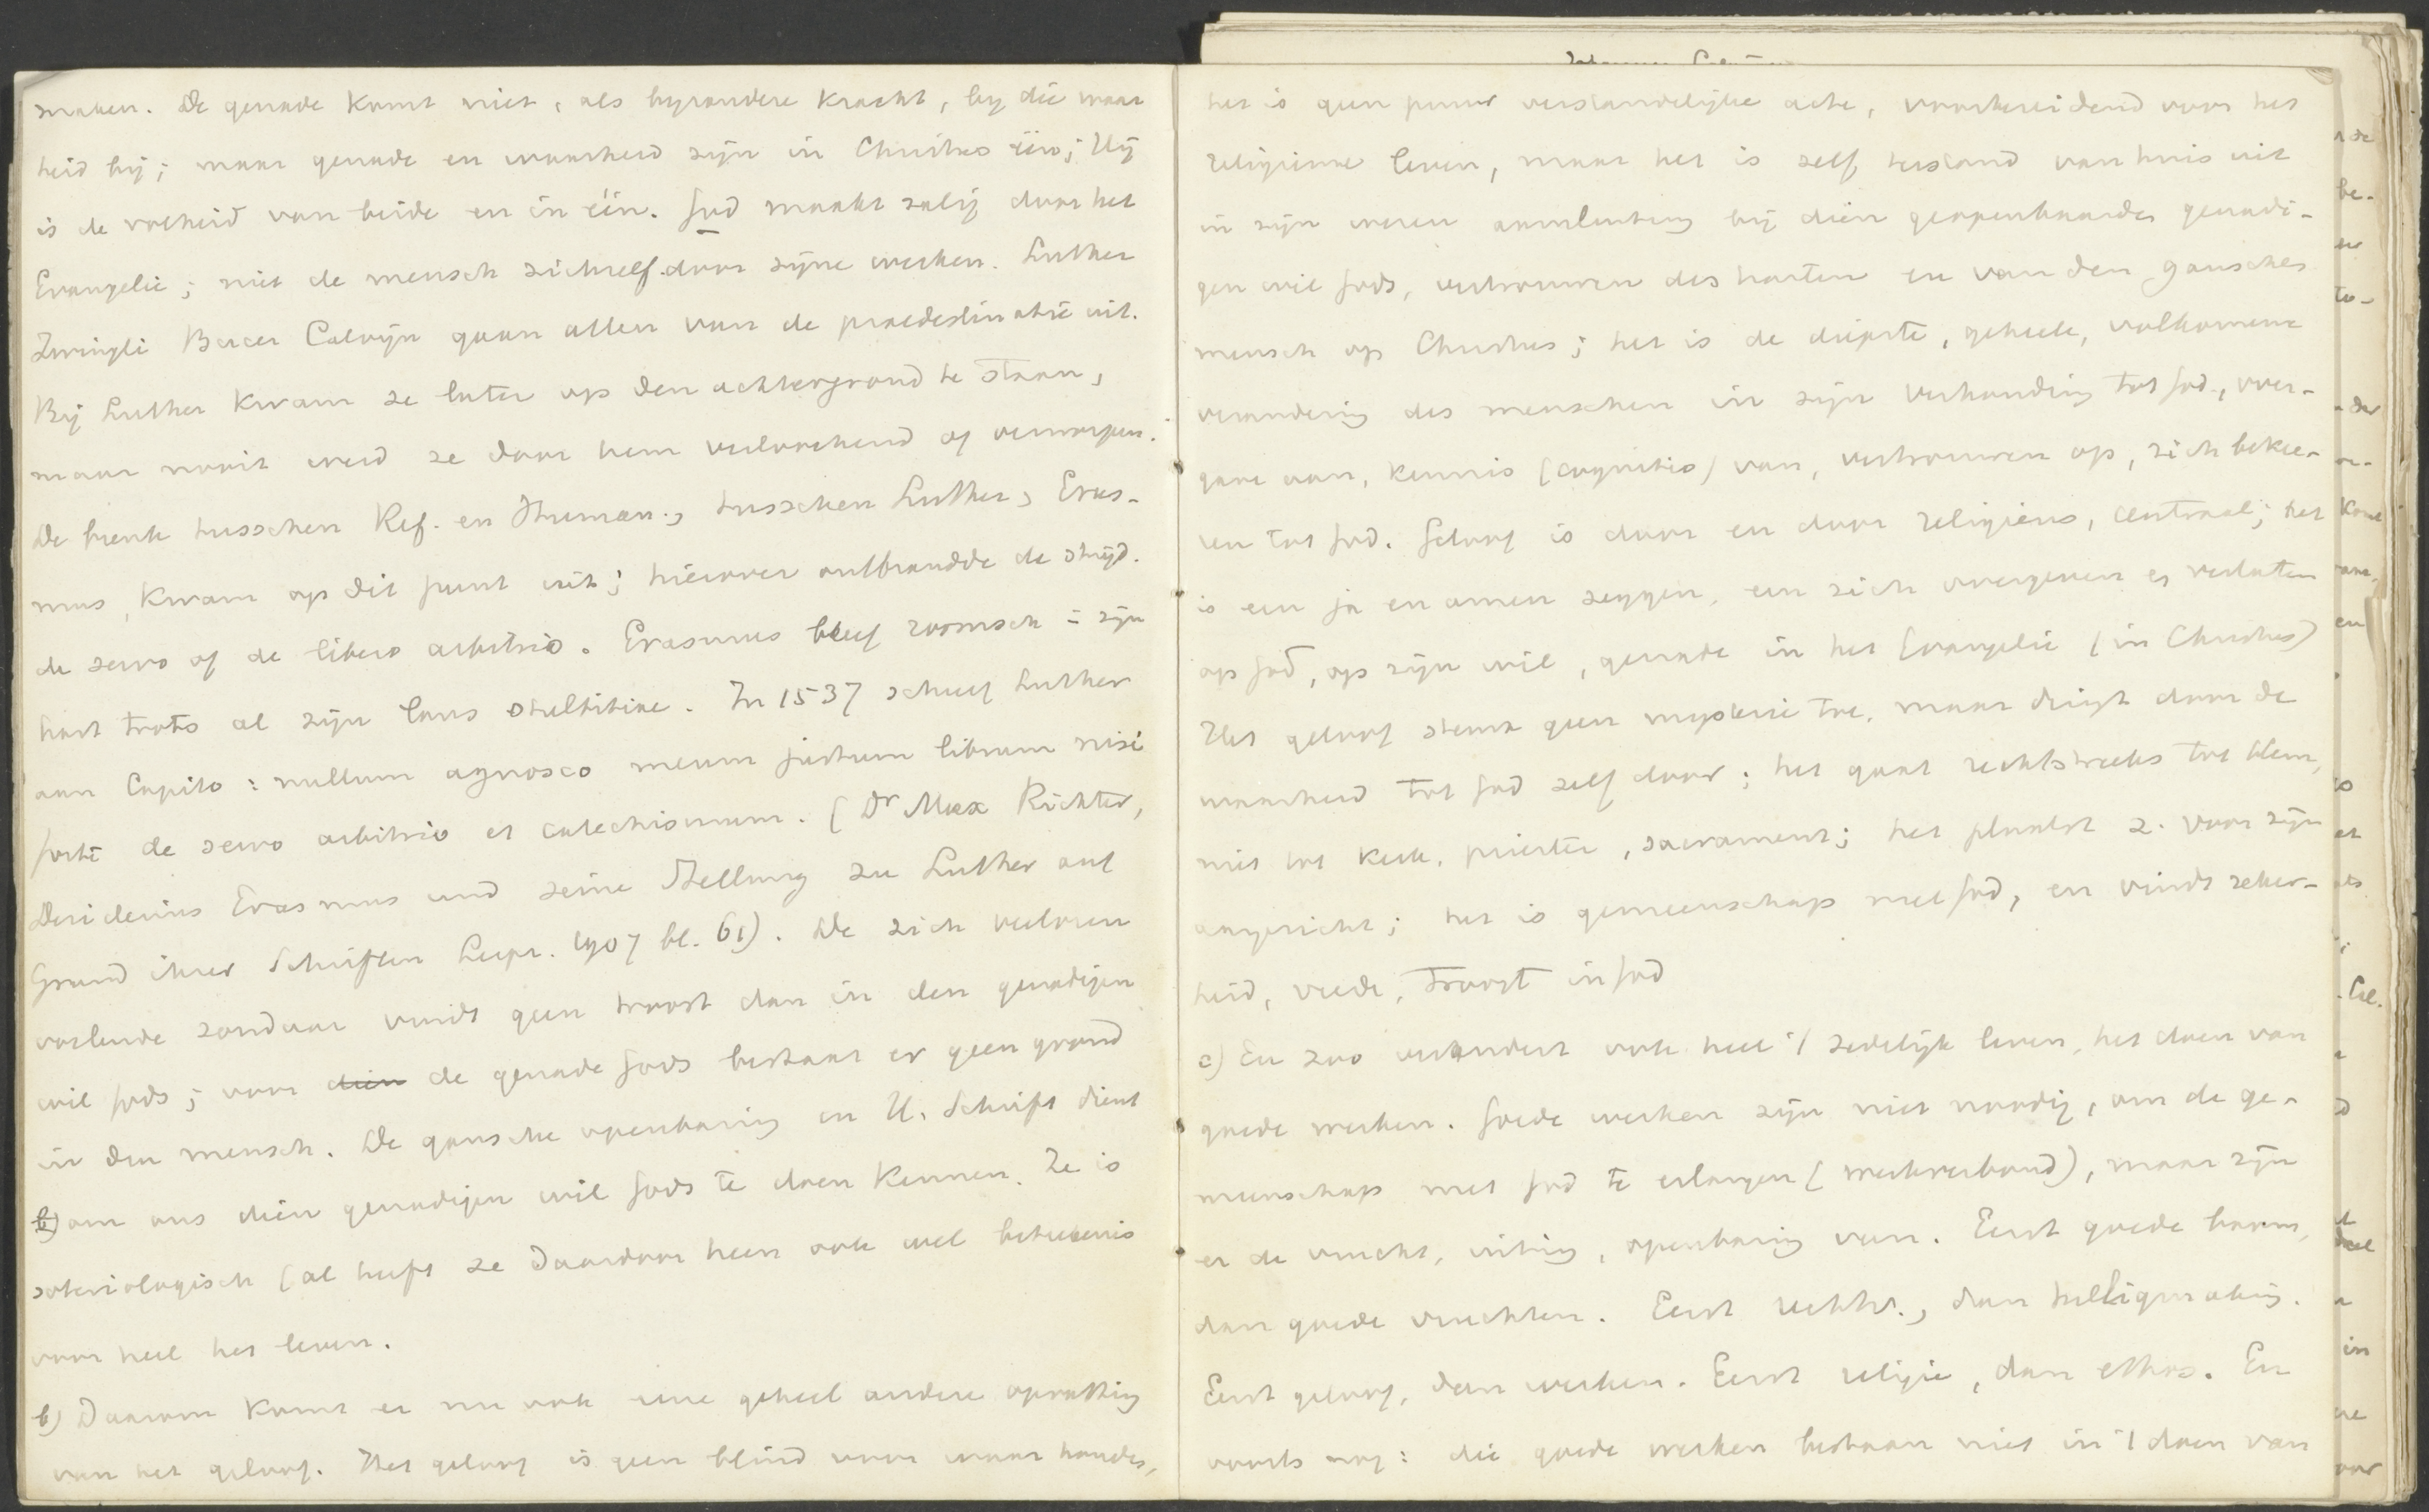 maken. De genade komt niet, als byzondere kracht, by die waar
heid bij; maar genade en waarheid zijn in Christus één; Hij
is de volheid van beide en in één. God maakt zalig door het
Evangelie; niet de mensch zichzelf door zijne werken. Luther
Zwingli Bucer Calvijn gaan allen van de praedestinatie uit.
Bij Luther kwam ze later op den achtergrond te staan,
maar nooit werd ze door hem verloochend of verworpen.
De breuk tusschen Ref. en Human., tusschen Luther, Eras-
mus, kwam op dit punt uit; hierover ontbrandde de strijd.
de servo of de libero arbitrio. Erasmus bleef roomsch in zijn
hart trots al zijn laus stultitiae. In 1537 schreef Luther
aan Capito: nullum agnosco meum justum librum nisi
forte de servo arbitrio et catechismum. (Dr Max Richter,
Desiderius Erasmus und seine Stellung zu Luther auf
Grund ihrer Schriften Leipz. 1907 bl. 61). De zich verloren
voelende zondaar vindt geen troost dan in den genadigen
wil Gods; voor dien de genade Gods bestaat er geen grond
in den mensch. De gansche openbaring en H. Schrift dient
b) om ons dien genadigen wil Gods te doen kennen. Ze is
soteriologisch (al heeft ze daardoor heen ook wel beteekenis
voor heel het leven.
b) Daarom komt er nu ook eene geheel andere opvatting
van het geloof. Het geloof is geen blind voor waar houden,
het is geen puur verstandelijke acte, voorbereidend voor het
religieuse leven, maar het is zelf bestand van huis uit
in zijn wezen aansluiting bij dien geopenbaarden genadi-
gen wil Gods, vertrouwen des harten en van den ganschen
mensch op Christus; het is de diepste, geheele, volkomene
verandering des menschen in zijn verhouding tot God, over-
gave aan, kennis (cognitio) van, vertrouwen op, zich bekee-
ren tot God. Geloof is door en door religieus, centraal; het
is een ja en amen zeggen, een zich overgeven en verlaten
op God, op zijn wil, genade in het Evangelie (in Christus)
Het geloof stemt geen mysterie toe, maar dringt door de
waarheid tot God zelf door; het gaat rechtstreeks tot Hem,
niet tot kerk, priester, sacrament; het plaatst z. voor zijn
aangezicht; het is gemeenschap met God, en vindt zeker-
heid, vrede, troost in God
c) En zoo verandert ook heel 't zedelijk leven, het doen van
goede werken. Goede werken zijn niet noodig, om de ge-
meenschap met God te erlangen (werkverbond), maar zijn
er de vrucht, uiting, openbaring van. Eerst goede boom,
dan goede vruchten. Eerst rechtv., dan heiligmaking.
Eerst geloof, dan werken. Eerst religie, dan ethos. En
voorts nog: die goede werken bestaan niet in 't doen van